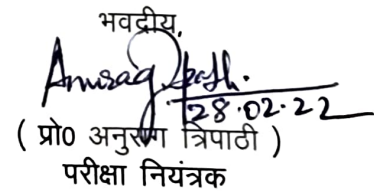 भवदीय,
Anurag
28.02.22
( प्रो0 अनुराग त्रिपाठी )
परीक्षा नियंत्रक